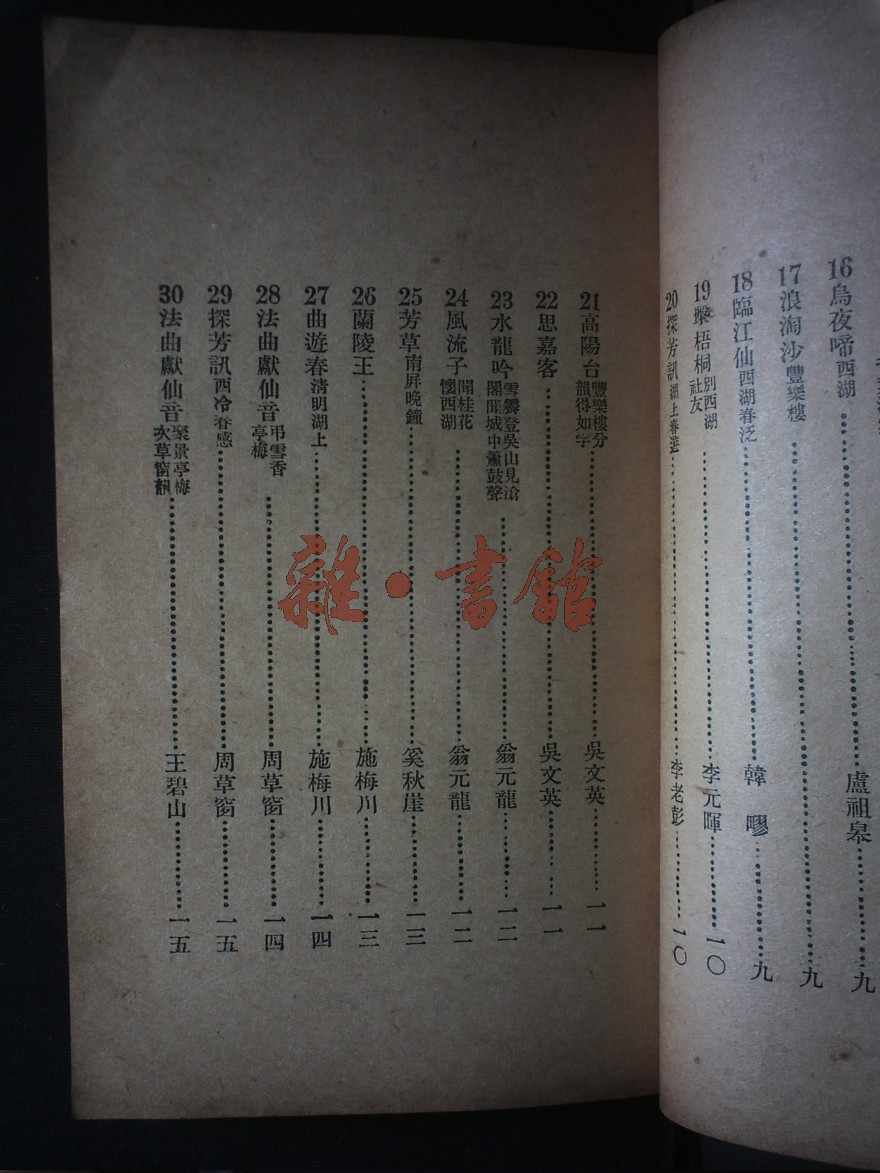 16烏夜啼西湖……盧祖皋……九
17浪淘沙豐樂樓……九
18臨江仙西湖春泛……韓疁……九
19擊梧桐別西湖社友……李元暉……一〇
20探芳訊湖上春遊……李老彭……一〇
21高陽台豐樂樓分韻得如字……吳文英……一一
22思嘉客……吳文英……一一
23水龍吟雪霽登吳山見滄閣聞城中簫鼓聲……翁元龍……一二
24風流子聞桂花懷西湖……翁元龍……一二
25芳草南屏晚鐘……奚秋崖……一三
26蘭陵王……施梅川……一三
27曲遊春清明湖上……施梅川……一四
28法曲獻仙音弔雪香亭梅……周草窗……一四
29探芳訊西泠春感……周草窗……一五
30法曲獻仙音聚景亭梅次草窗韻……王碧山……一五
雜·書館